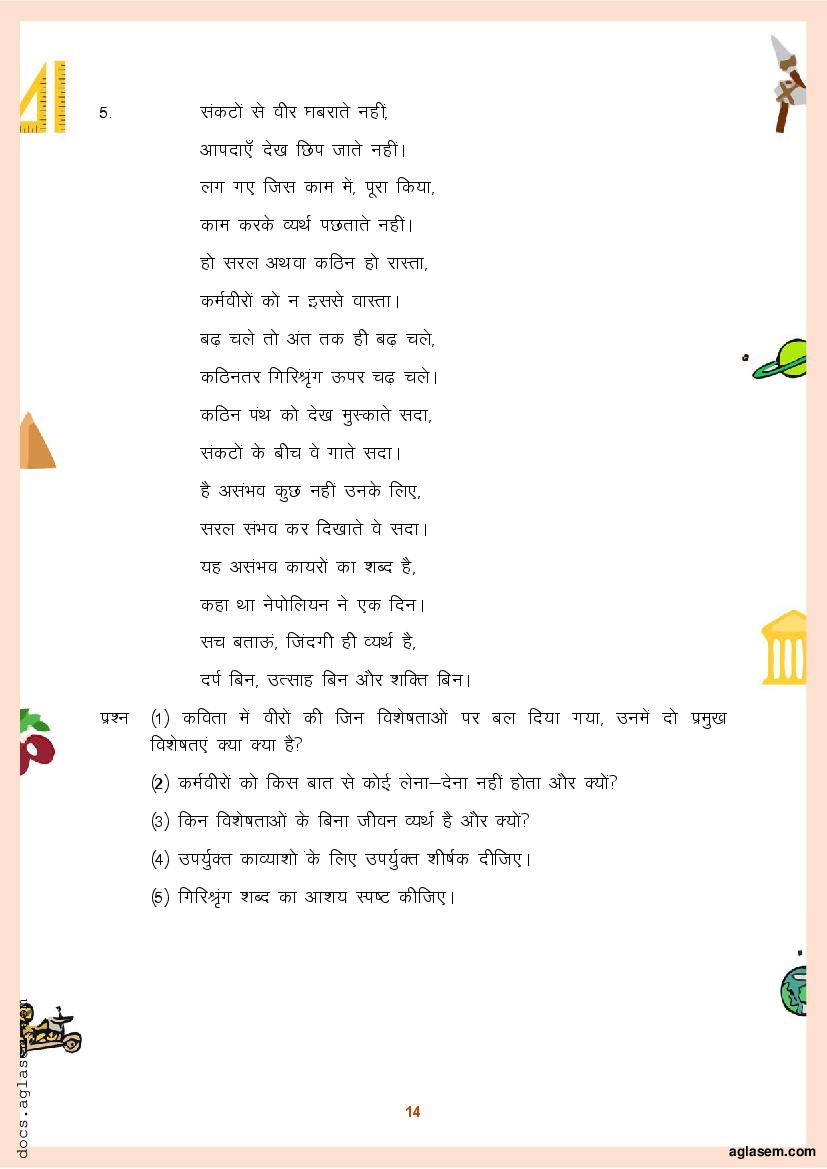 5. संकटों से वीर घबराते नहीं,
आपदाएँ देख छिप जाते नहीं।
लग गए जिस काम में, पूरा किया,
काम करके व्यर्थ पछताते नहीं।
हो सरल अथवा कठिन हो रास्ता,
कर्मवीरों को न इससे वास्ता।
बढ़ चले तो अंत तक ही बढ़ चले,
कठिनतर गिरिश्रृंग ऊपर चढ़ चले।
कठिन पंथ को देख मुस्काते सदा,
संकटों के बीच वे गाते सदा।
है असंभव कुछ नहीं उनके लिए,
सरल संभव कर दिखाते वे सदा।
यह असंभव कायरों का शब्द है,
कहा था नेपोलियन ने एक दिन।
सच बताऊं, जिंदगी ही व्यर्थ है,
दर्प बिन, उत्साह बिन और शक्ति बिन।
प्रश्न (1) कविता में वीरों की जिन विशेषताओं पर बल दिया गया, उनमें दो प्रमुख
विशेषतएं क्या क्या है?
(2) कर्मवीरों को किस बात से कोई लेना–देना नहीं होता और क्यों?
(3) किन विशेषताओं के बिना जीवन व्यर्थ है और क्यों?
(4) उपर्युक्त काव्याशो ंके लिए उपर्युक्त शीर्षक दीजिए।
(5) गिरिश्रृंग शब्द का आशय स्पष्ट कीजिए।
14
aglasem.com